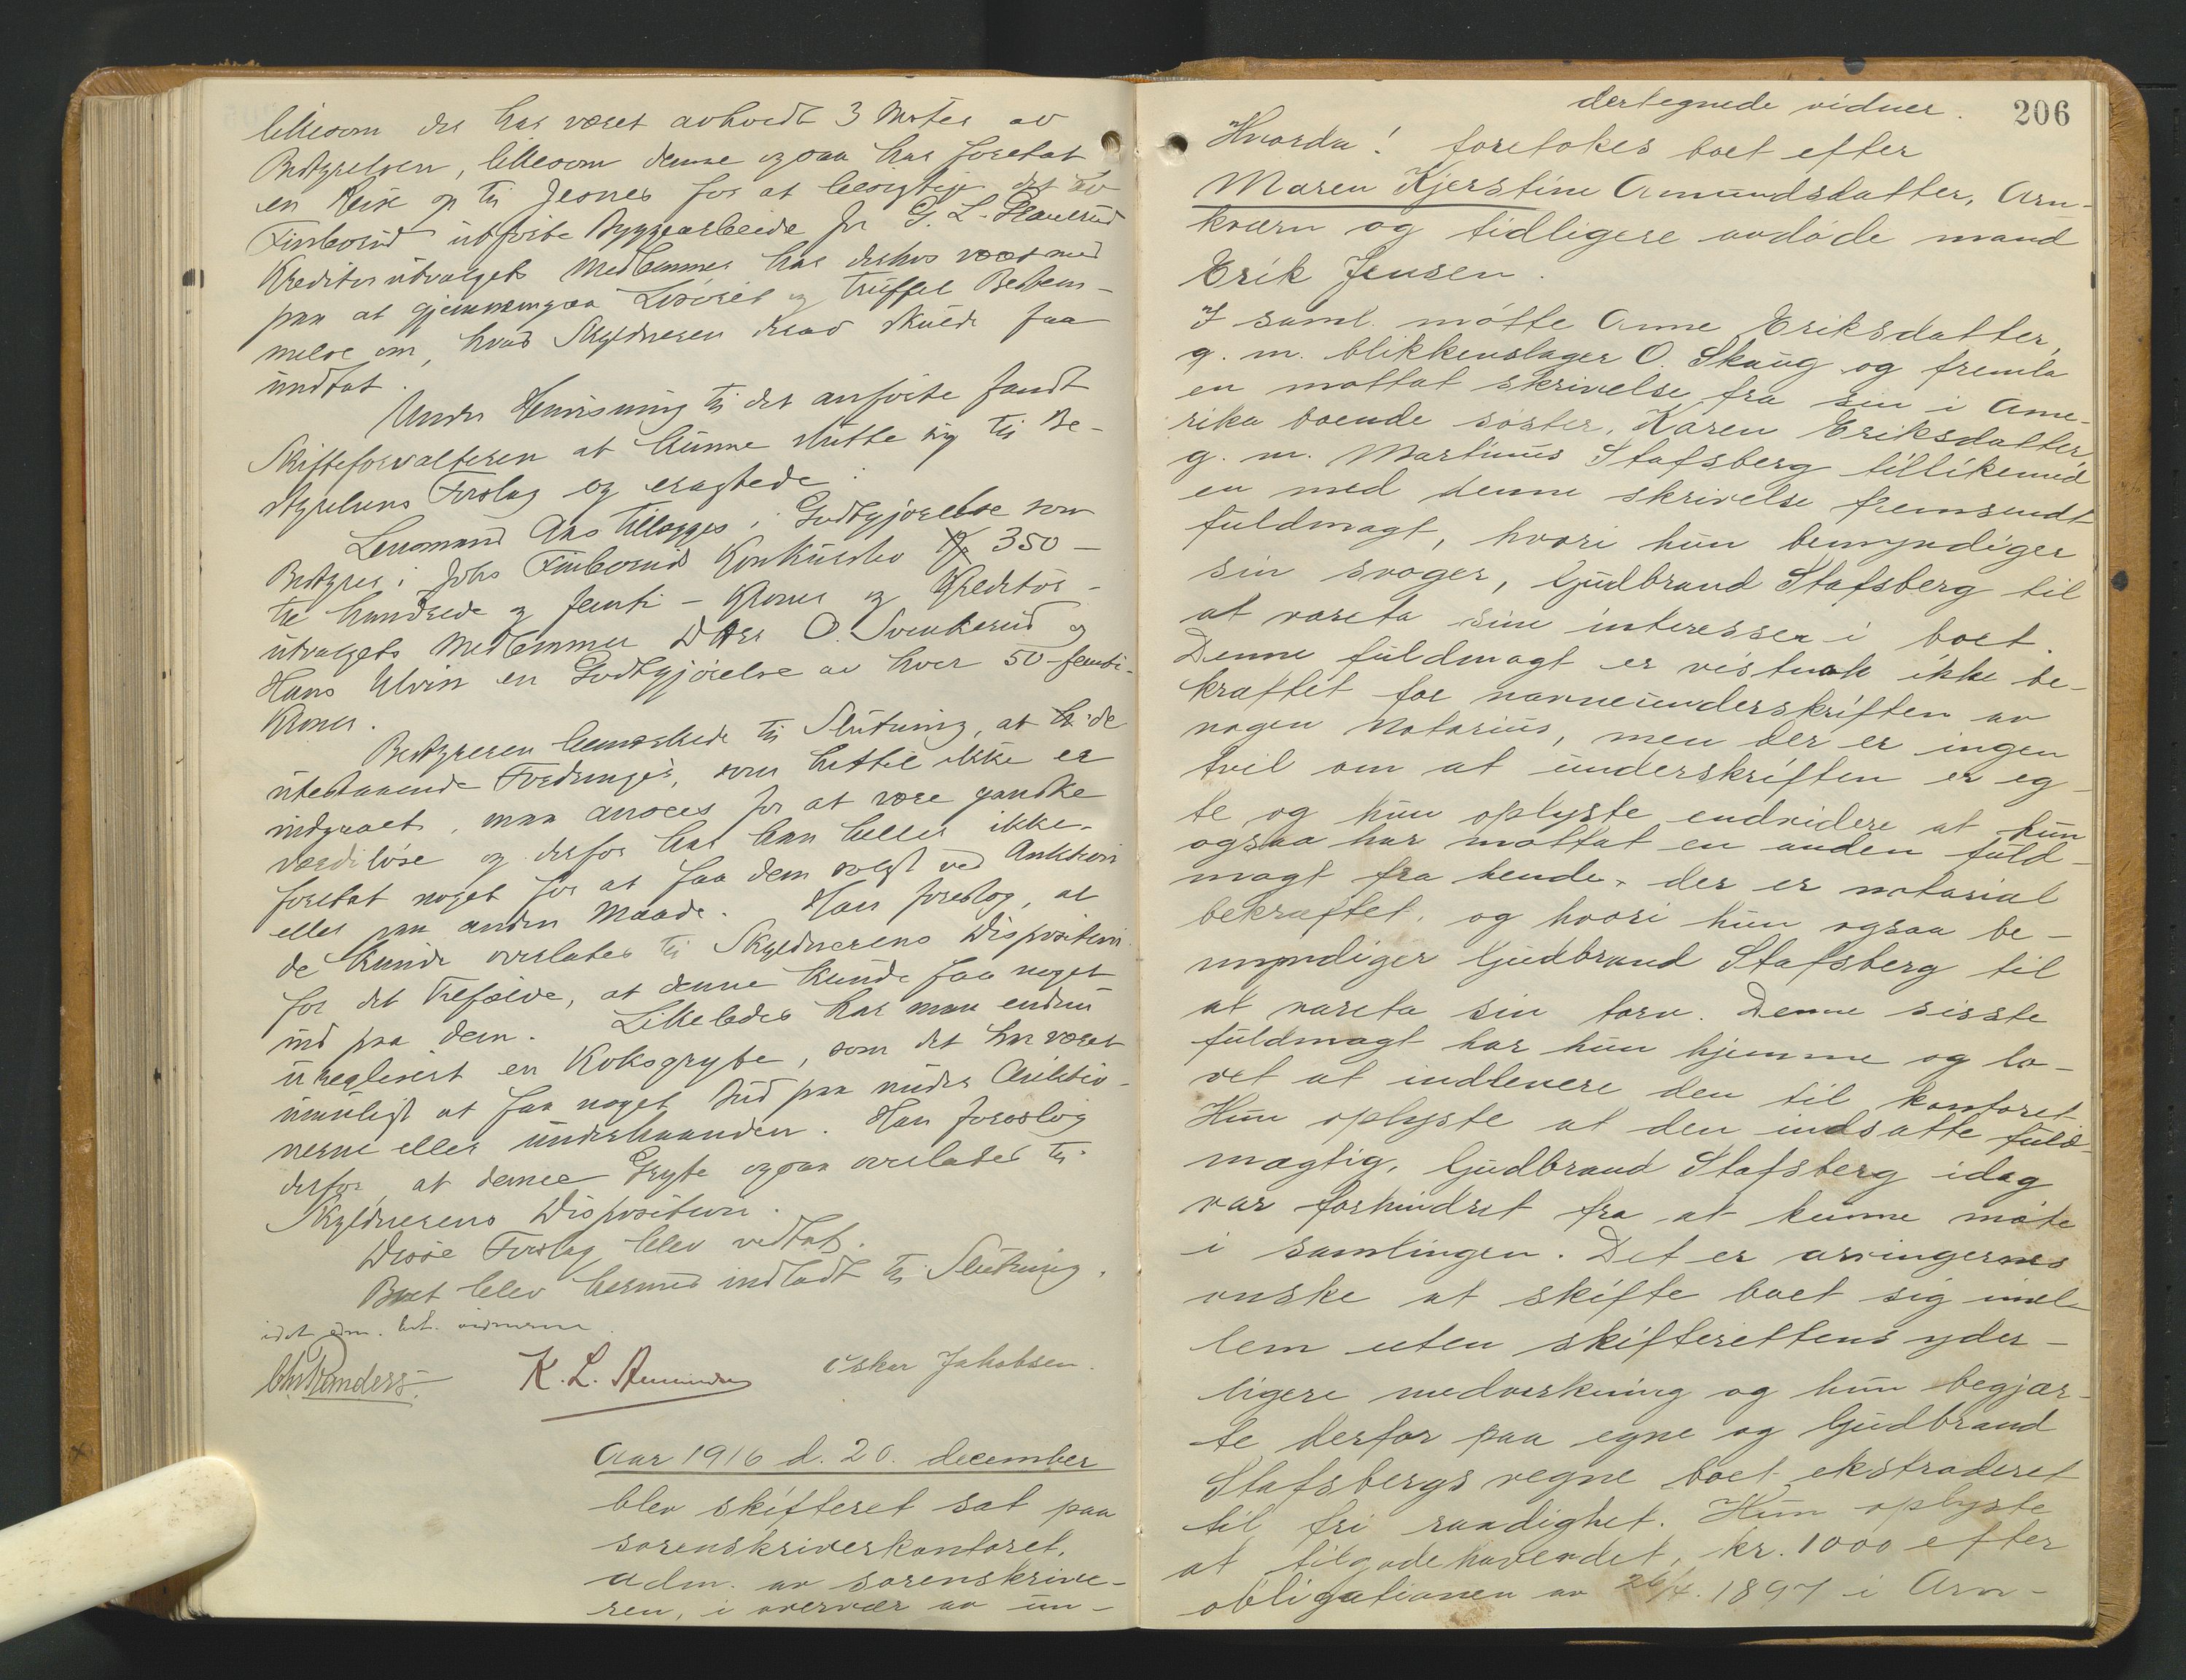 likesom der har været avholdt 3 Møter av
Bestyrelsen, likesom denne ogsaa har foretat
en Reise op til Jesnes for at besigtige det av
Finborud utførte Byggearbeide for G. L.
Kreditorutvalgets Medlemmer har derhos været med
paa at gjennemgaa Løsøret og truffet Bestem-
melse om, hvad Skyldneren derav skulde faa
undtat.
Under Henvisning til det anførte fandt
Skifteforvalteren at kunne slutte sig til Be-
styrelsens Forslag og eragtede:
Lensmand Aas tillægges i Godtgjørelse som
Bestyrer i Johs Finboruds Konkursbo Kr 350 –
tre hundrede og femti – Kroner og Kreditor-
utvalgets Medlemmer DHrr O. Svenkerud og
Hans Ulvin en Godtgjørelse av hver 50 – femti-
Kroner.
Bestyreren bemerkede til Slutning, at de
utestaaende Fordringer, som hittil ikke er
indgaaet, maa ansees for at være ganske
værdiløse og derfor har han heller ikke
foretat noget for at faa dem solgt ved Auktion
eller paa anden Maade. Han foreslog, at
de kunde overlates til Skyldnerens Disposition
for det Tilfælde, at denne kunde faa noget
ind paa dem. Likeledes har man endnu
urealisert en Koksgryte, som det har været
umuligt at faa noget Bud paa under Auktio-
nerne eller underhaanden. Han foreslog
derfor, at denne Gryte ogsaa overlates til
Skyldnerens Disposition.
Disse Forslag blev vedtat.
Boet blev hermed indladt til Slutning.
idet adm. bet. vidnerne
Chr Randers. K. L. Amundsen Oskar Jakobsen.
Aar 1916 d. 20. december
blev skifteret sat paa
sorenskriverkontoret,
adm. av sorenskrive-
ren, i overvær av un-
206
dertegnede vidner.
Hvorda! foretokes boet efter
Maren Kjerstine Amundsdatter, Arn-
kværn og tidligere avdøde mand
Erik Jensen.
I saml. møtte Anne Eriksdatter,
g. m. blikkenslager O. Skaug og fremla
en mottat skrivelse fra sin i Ame-
rika boende søster, Karen Eriksdatter,
g. m. Martinus Stafsberg tillikemed
en med denne skrivelse fremsendt
fuldmagt, hvori hun bemyndiger
sin svoger, Gudbrand Stafsberg til
at vareta sine interesser i boet.
Denne fuldmagt er vistnok ikke be-
kræftet for navneunderskriften av
nogen Notarius, men der er ingen
tvil om at underskriften er eg-
te og hun oplyste endvidere at hun
ogsaa har mottat en anden fuld-
magt fra hende, der er notarial
bekræftet, og hvori hun ogsaa be-
myndiger Gudbrand Stafsberg til
at vareta sin tarv. Denne sisste
fuldmagt har hun hjemme og lo-
vet at indlevere den til kontoret.
Hun oplyste at den indsatte fuld-
mægtig, Gudbrand Stafsberg idag
var forhindret fra at kunne møte
i samlingen. Det er arvingernes
ønske at skifte boet sig imel-
lem uten skifterettens yder-
ligere medvirkning og hun begjær-
te derfor paa egne og Gudbrand
Stafsbergs vegne boet ekstraderet
til fri raadighet. Hun oplyste
at tilgodehavendet, kr. 1000 efter
obligationen av 26/4. 1897 i Arn-